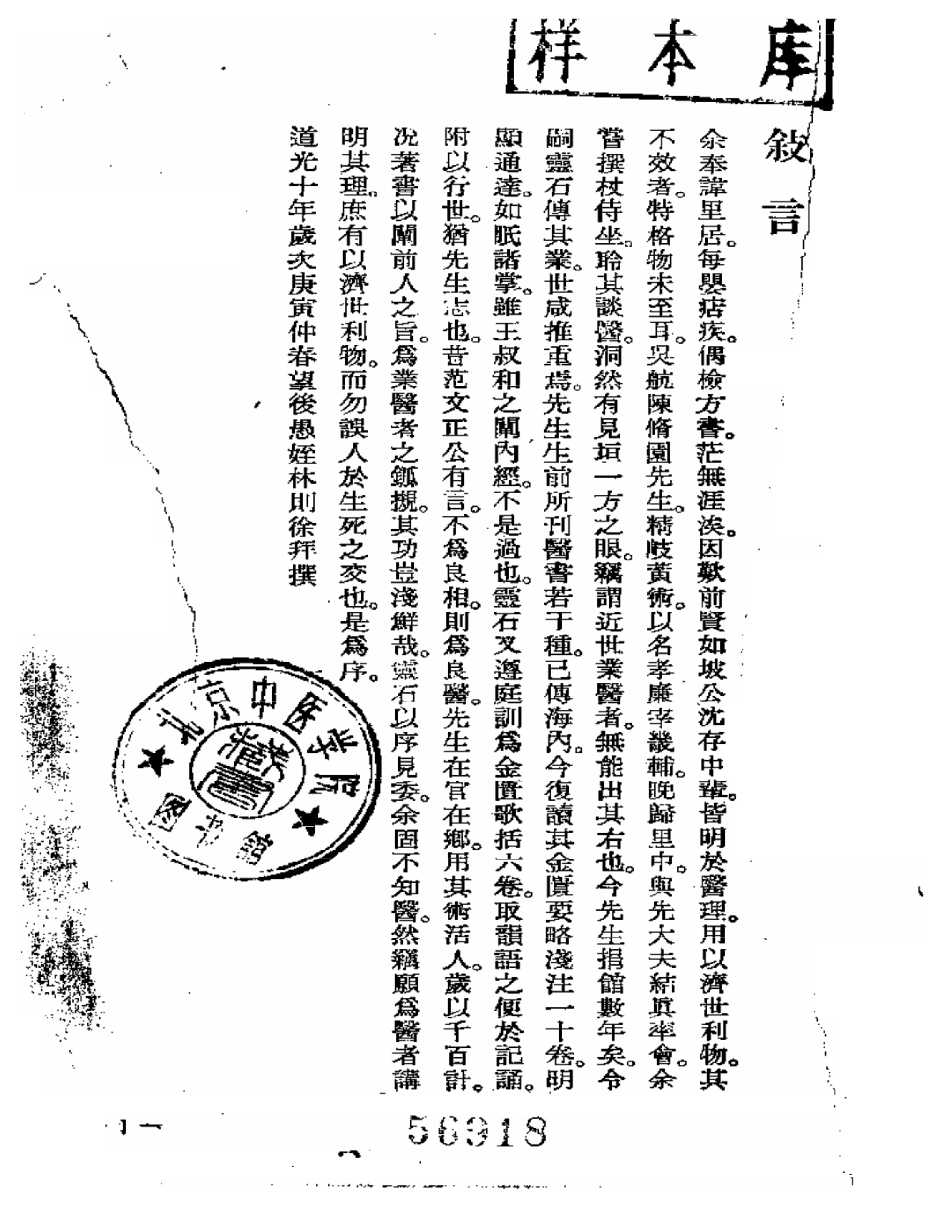 样本库
敍言
余奉諱里居。每嬰痁疾。偶檢方書。茫無涯涘。因歎前賢如坡公沈存中輩。皆明於醫理。用以濟世利物。其
不效者。特格物未至耳。吳航陳脩園先生。精岐黃術。以名孝廉宰畿輔。晚歸里中。與先大夫結眞率會。余
嘗撰杖侍坐。聆其談醫。洞然有見垣一方之眼。竊謂近世業醫者。無能出其右也。今先生捐館數年矣。令
嗣靈石傳其業。世咸推重焉。先生生前所刊醫書若干種。已傳海內。今復讀其金匱要略淺注一十卷。明
顯通達。如眡諸掌。雖王叔和之闡內經。不是過也。靈石又遵庭訓爲金匱歌括六卷。取韻語之便於記誦。
附以行世。猶先生志也。昔范文正公有言。不爲良相。則爲良醫。先生在官在鄉。用其術活人。歲以千百計。
况著書以闡前人之旨。爲業醫者之鈲摫。其功豈淺鮮哉。靈石以序見委。余固不知醫。然竊願爲醫者講
明其理。庶有以濟世利物。而勿誤人於生死之交也。是爲序。
道光十年歲次庚寅仲春望後愚姪林則徐拜撰
北京中医学院
藏書
图书馆
一
56918